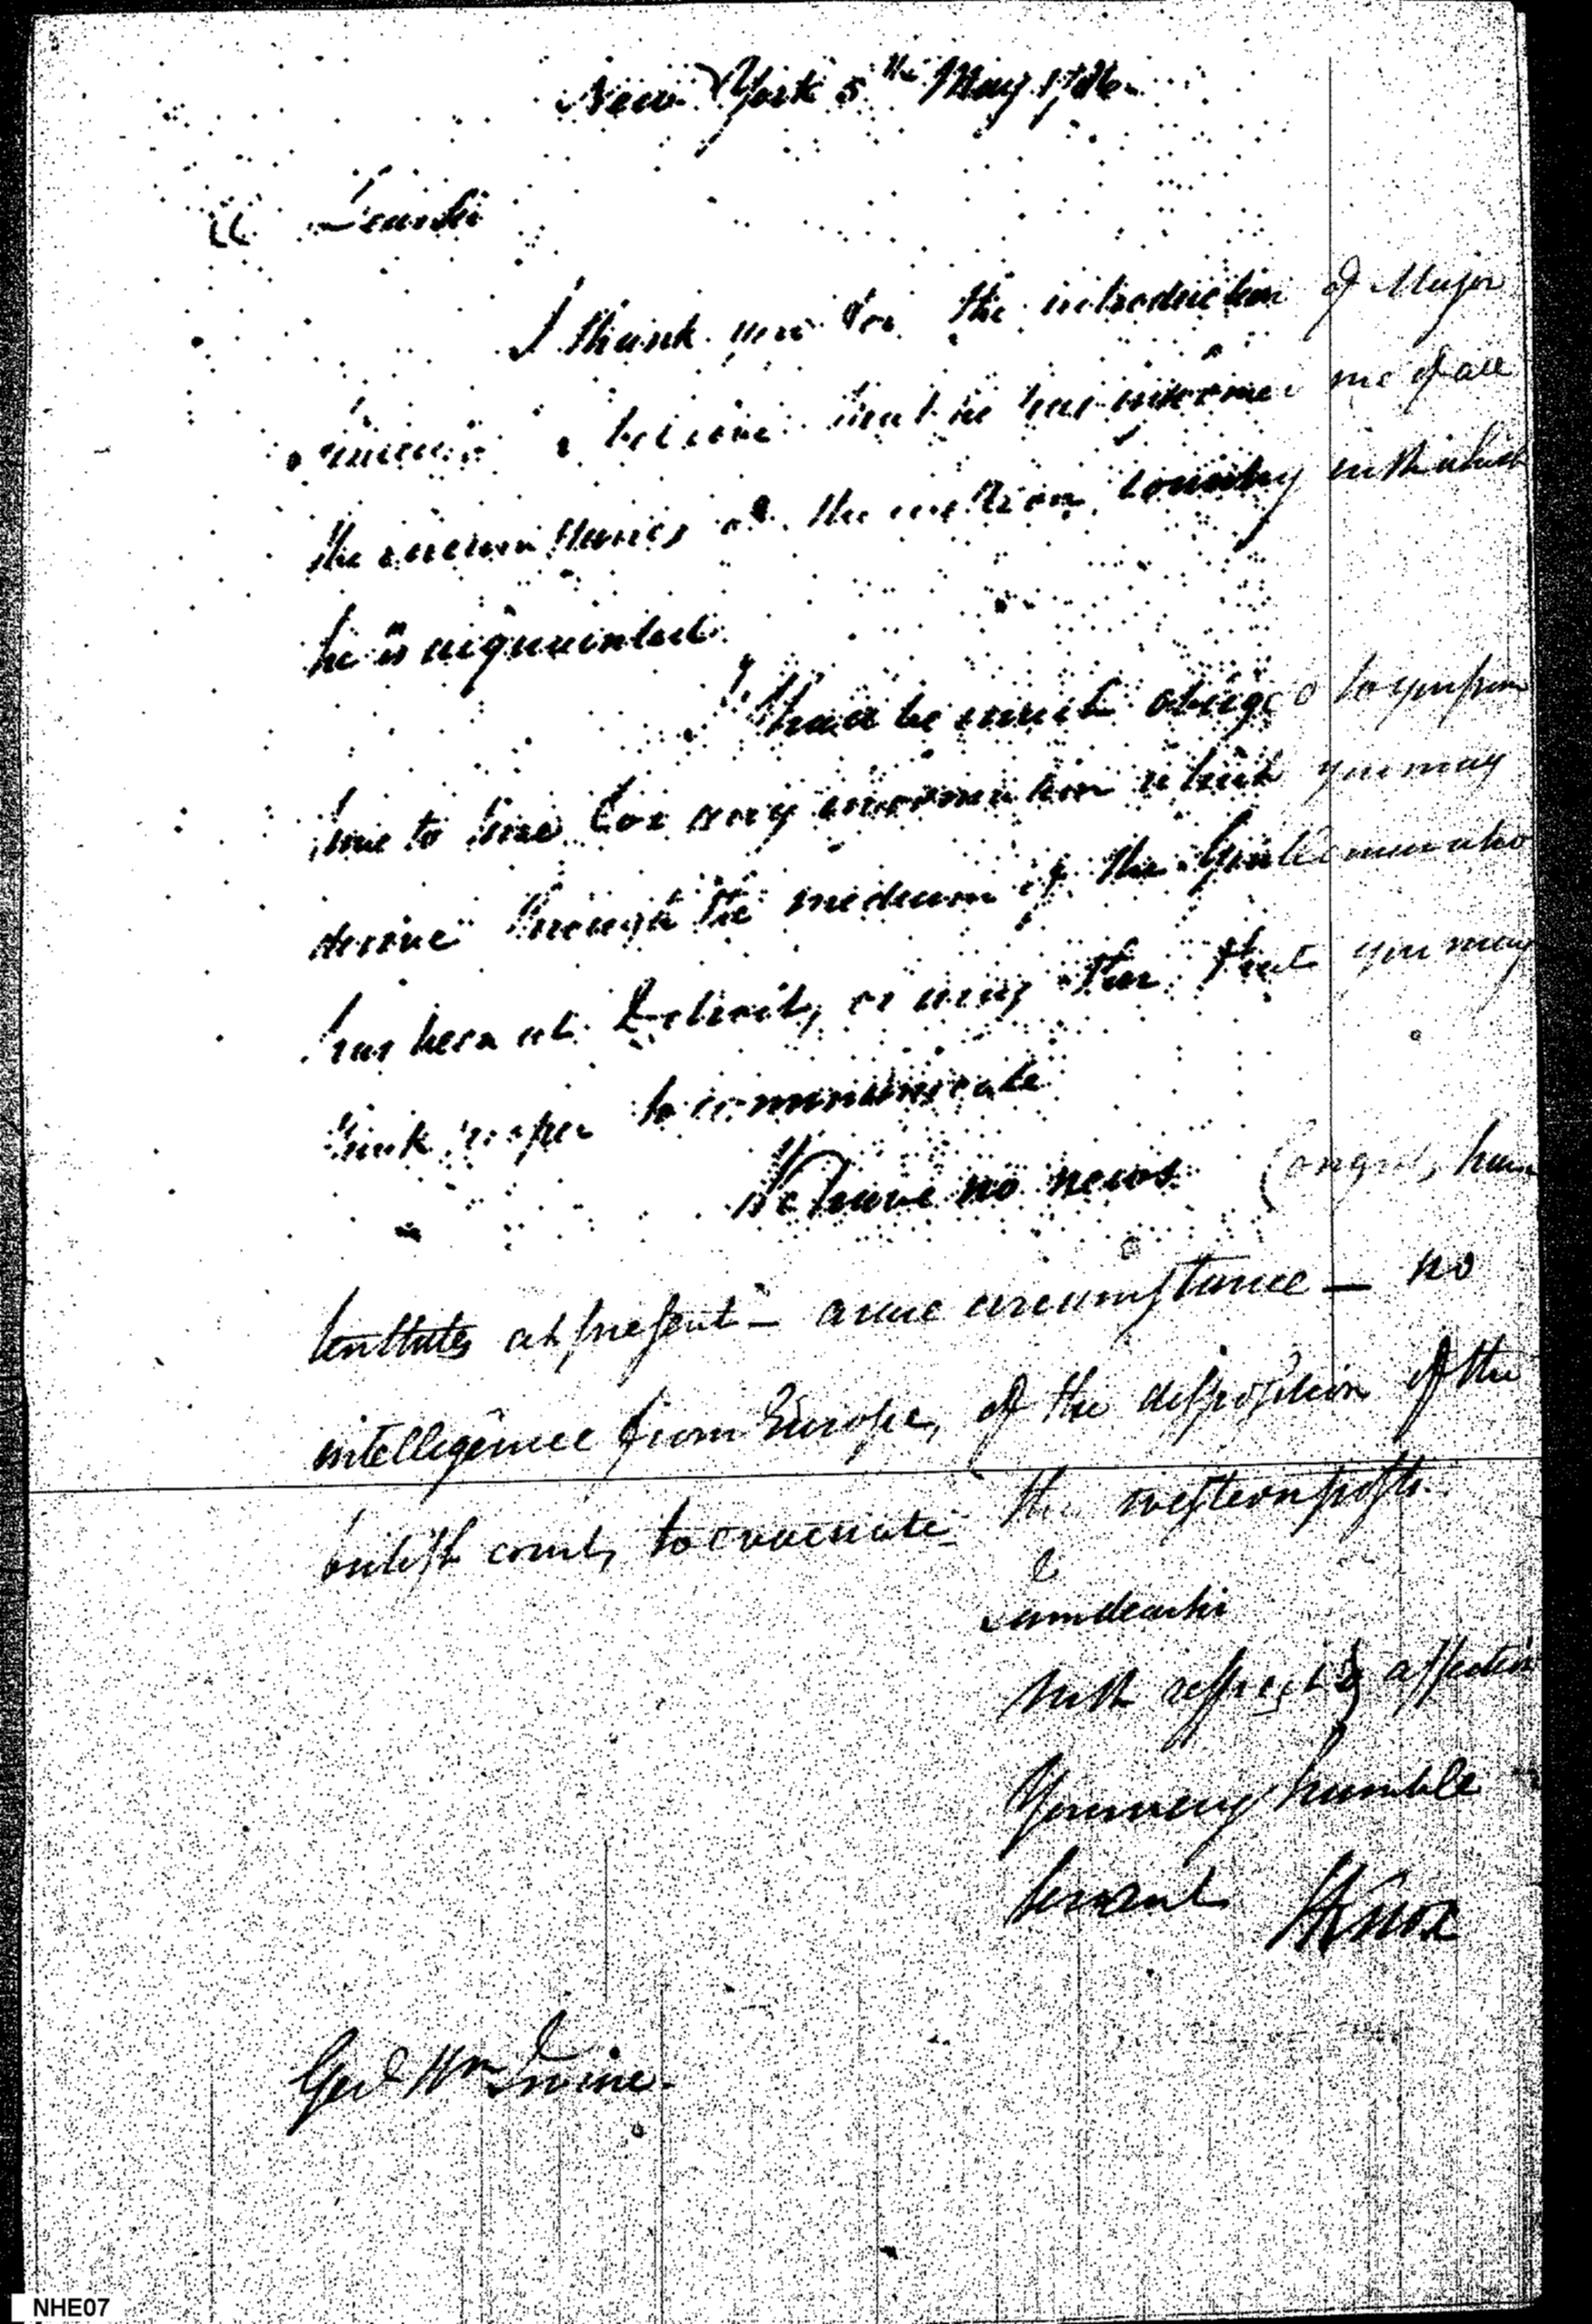 New York 5th May 1786
Dear Sir
I thank you for the introduction of Major
I believe that he has informed me of all
the circumstances of the western Country with which
he is acquainted.
I shall be much obliged to you from
time to time for any information which you may
derive through the medium of the Gentleman who
has been at Detroit, or any other that you may
think proper to communicate
We have no news. Congress have
ten States at present — a rare circumstance — no
intelligence from Europe, of the disposition of the
british court, to evacuate the western posts.
I am dear sir
with respect & affection
Your very humble
servant HKnox
Genl Wm Irvine.
NHE07